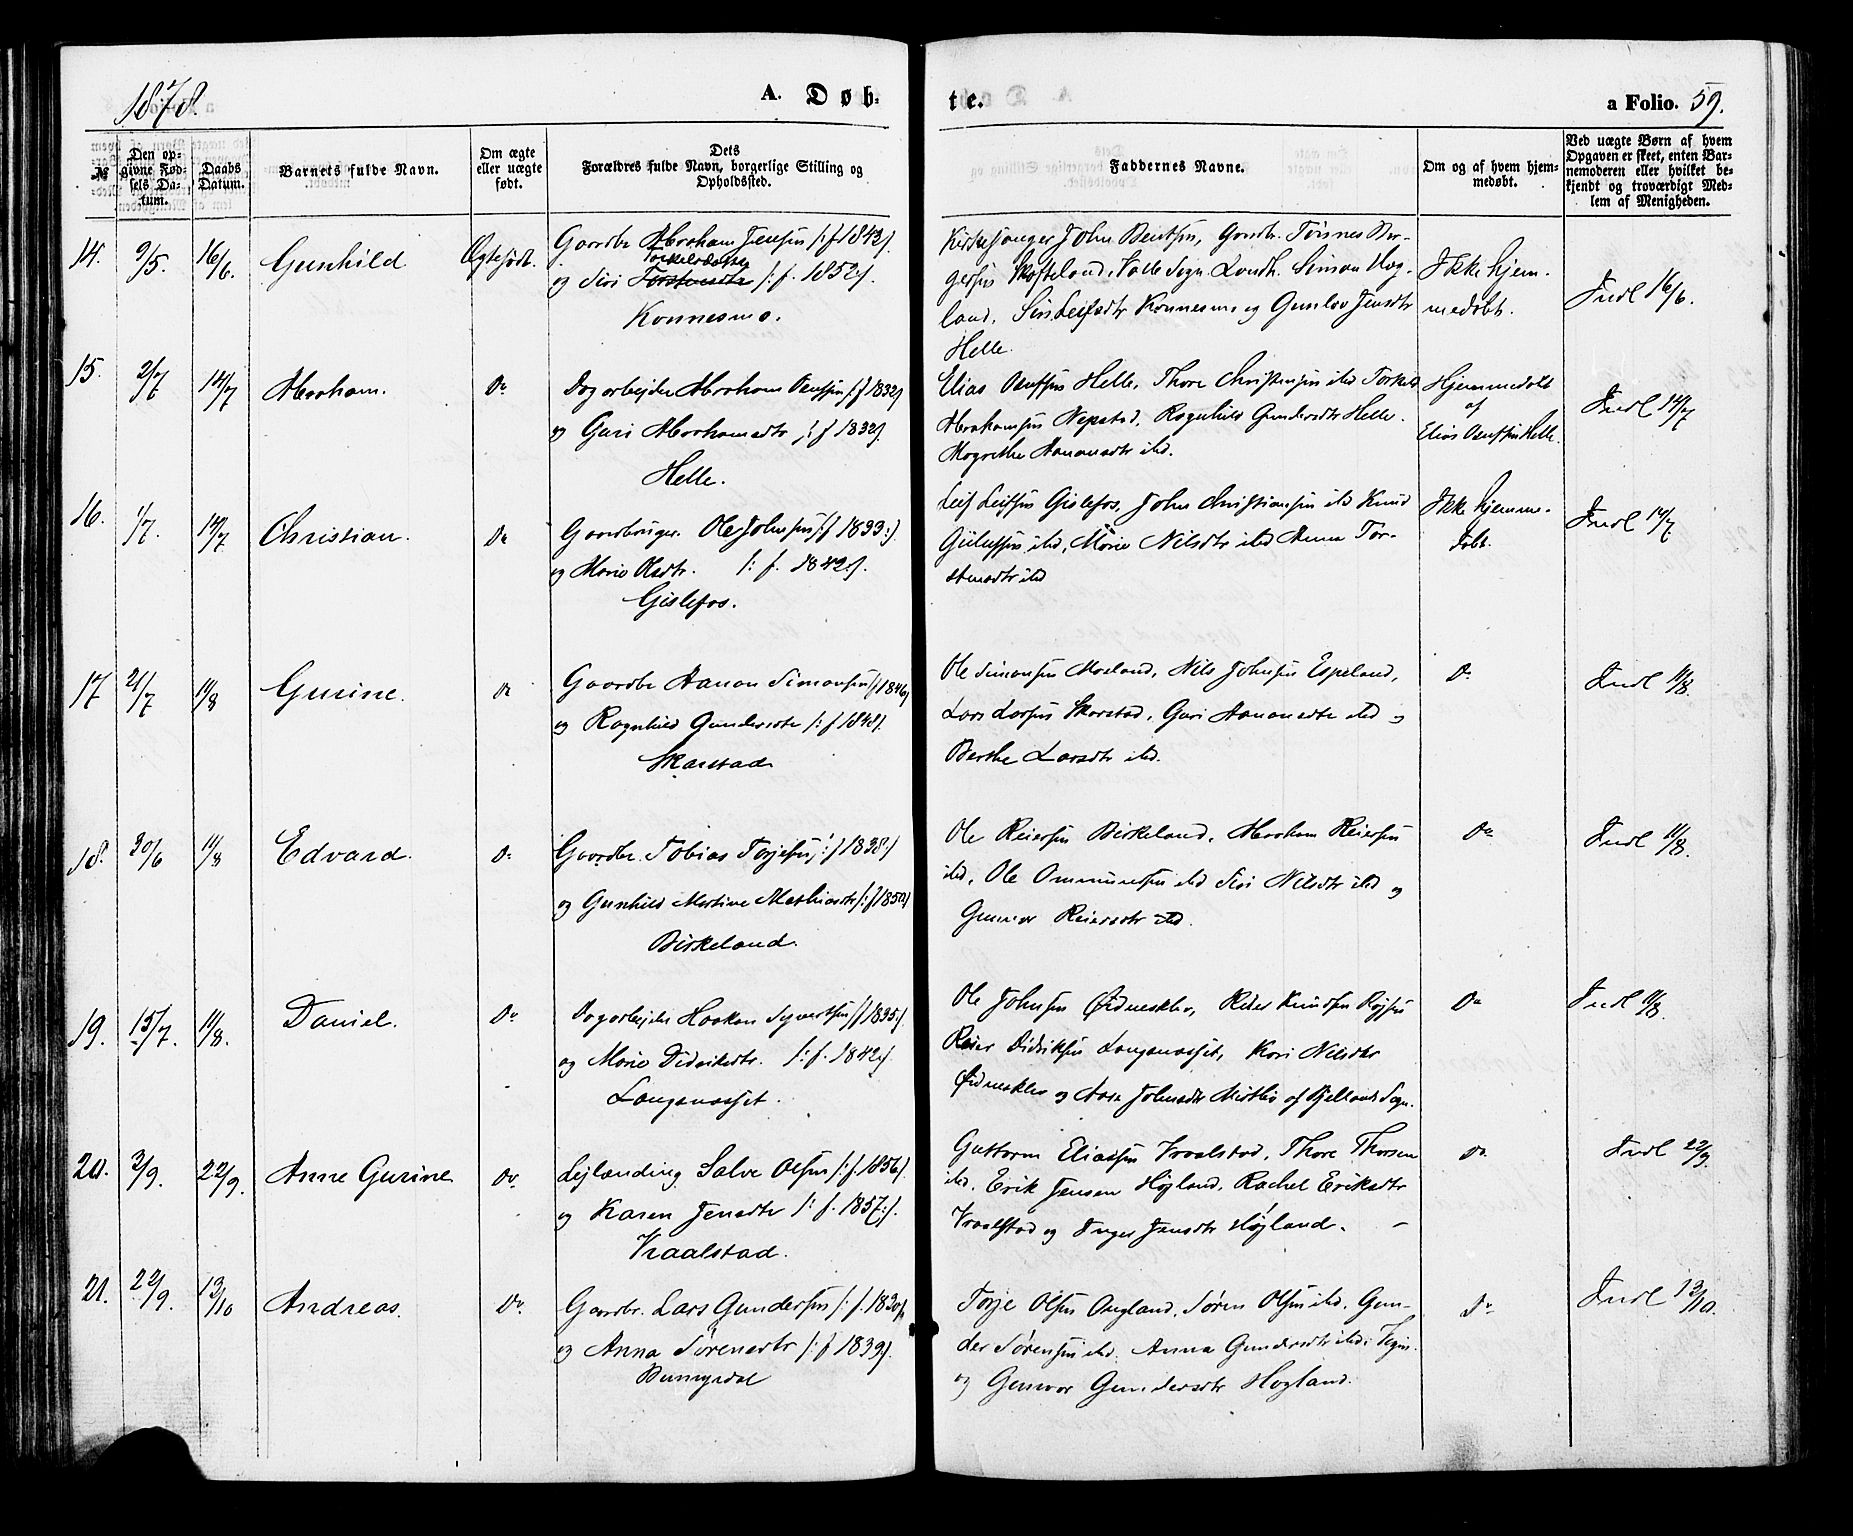 1878.
A. Døb-
te.
a Folio. 59.
№
Den op-
givne Fød-
sels Da-
tum.
Daabs
Datum.
Barnets fulde Navn.
Om ægte
eller uægte
født.
Dets
Forældres fulde Navn, borgerlige Stilling og
Opholdssted.
Faddernes Navne.
Om og af hvem hjem-
medøbt.
Ved uægte Børn af hvem
Opgaven er skeet, enten Bar-
nemoderen eller hvilket be-
kjendt og troværdigt Med-
lem af Menigheden.
14. 9/5. 16/6. Gunhild Ægtefødt.
Gaardbr Abraham Jensen /: f 1842/.
Torkelsdatter
og Siri Torstensdtr /: f. 1852/.
Konnesmo.
Kirkesanger John Bentsen, Gaardbr. Tørnes Ber-
gersen Skofteland, Valle Sogn. Landh. Simon Aag-
land. Siri Leifsdtr Konnesmo og Gunlov Jensdtr
Helle.
Ikke hjem-
medøbt.
Indl 16/6.
15. 2/7 14/7 Abraham. Do
Dagarbejder Abraham Osufsen /: f 1832/
og Guri Abrahamsdtr /: f 1832/.
Helle.
Elias Osufsen Helle, Thore Christensen ibd Torkild
Abrahamsen Nepstad, Ragnhild Gundersdtr Helle.
Magrethe Aanonsdtr ibd.
Hjemmedøbt
af
Elias Osufsen Helle.
Indl 14/7
16. 1/7. 14/7 Christian. Do
Gaardbruger Ole Johnsen /: f 1833:/
og Marie Olsdtr. /: f. 1842:/.
Gislefos.
Leif Leifsen Gislefos, John Christiansen ibd Knud
Gislufsen ibd, Marie Nilsdtr ibd Anna Tor-
stensdtr ibd
Ikke hjemme-
døbt.
Indl 14/7.
17 21/7 11/8 Gurine. Do
Gaardbr Aanon Simonsen /: f 1846/
og Ragnhild Gundersdtr /: f 1848/.
Skarstad
Ole Simonsen Moeland, Nils Johnsen Espeland,
Lars Larsen Skarstad, Guri Aanonsdtr ibd og
Berthe Larsdtr ibd.
Do
Indl 11/8.
18. 30/6 11/8 Edvard. Do
Gaardbr. Tobias Torjesen /: f 1838:/
og Gunhild Martine Mathiasdtr /: f 1850/
Birkeland.
Ole Reiersen Birkeland, Abraham Reiersen
ibd, Ole Ommundsen ibd Siri Nilsdtr ibd og
Gunvor Reiersdtr ibd.
Do
Indl 11/8.
19. 15/7. 11/8. Daniel. Do
Dagarbejder Haakon Syvertsen /: f 1835:/.
og Marie Didriksdtr. /: f. 1842:/.
Langanasset.
Ole Johnsen Øidnesklev, Reier Knudsen
Reier Didriksen Langanasset, Kari Nilsdtr
Øidnesklev og Aase Johnsdtr af Bjellands Sogn.
Do
Indl 11/8.
20. 3/9. 22/9. Anne Gurine Do
Lejlænding Salve Olsen /: f. 1856/.
og Karen Jensdtr /: f. 1857:/.
Vraalstad.
Guttorm Eliassen Vraalstad, Thore Thorsen
ibd. Erik Jensen Højland, Rachel Eriksdtr
Vraalstad og Inger Jensdtr Højland. -
Do
Indl 22/9.
21. 22/9. 13/10 Andreas. Do
Gaardbr. Lars Gundersen /: f. 1830/.
og Anna Sørensdtr /: f 1839/.
Torje Olsen Øugland, Søren Olsen ibd, Gun-
der Sørensen ibd. Anna Gundersdtr ibd i
og Gunvor Gundersdtr Høgland.
Do
Indl 13/10.